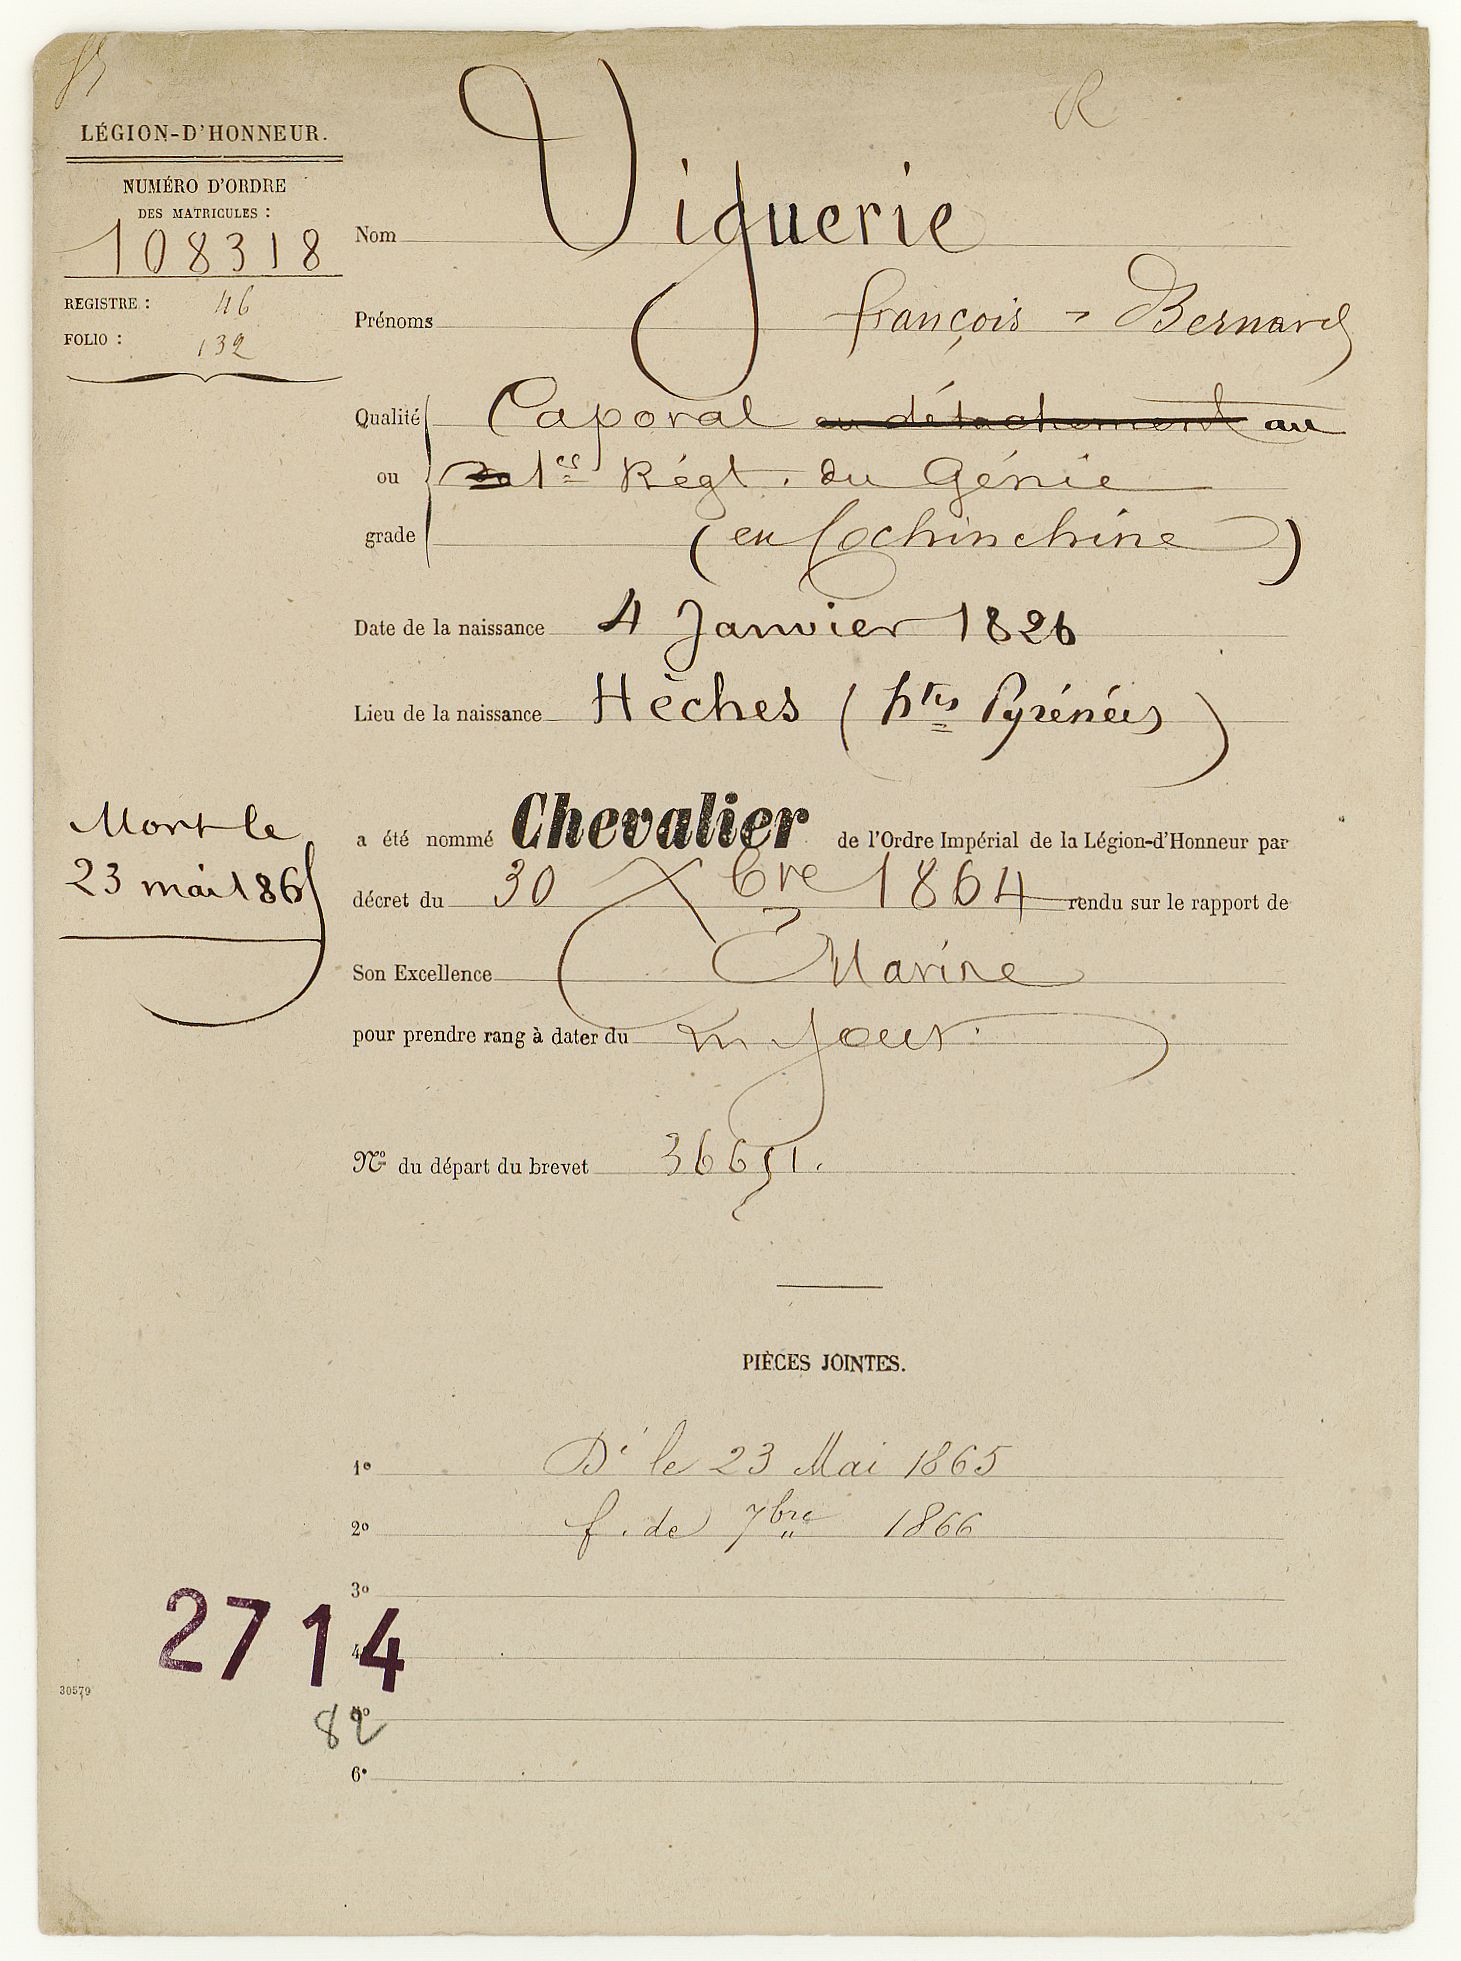 R
LÉGION-D'HONNEUR.
NUMÉRO D'ORDRE
DES MATRICULES :
108318
REGISTRE : 46
FOLIO : 132
Nom Viguerie
Prénoms françois = Bernard
Qualité ou grade
Caporal en détachement au
1er Régt. du Génie
(en Cochinchine)
Date de la naissance 4 Janvier 1826
Lieu de la naissance Hèches (htes Pyrénées)
Mort le
23 mai 1865
a été nommé Chevalier de l'Ordre Impérial de la Légion-d'Honneur par
décret du 30 Xbre 1864 rendu sur le rapport de
Son Excellence Marine
pour prendre rang à dater du m jour.
No du départ du brevet 36651.
PIÈCES JOINTES.
1o Dé le 23 Mai 1865
2o f. de 7bre 1866
3o
4o
2714
30579
5o
82
6o